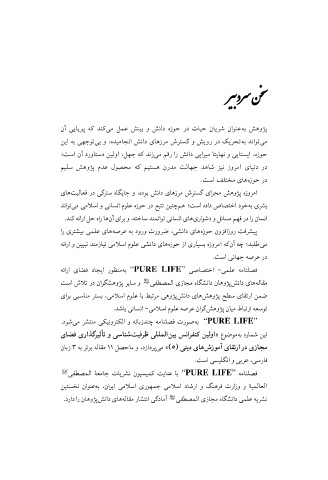 سخن سردبیر
پژوهش به‌عنوان شریان حیات در حوزه دانش و بینش عمل می‌کند که پویایی آن
می‌تواند به‌تحریک در رویش و گسترش مرزهای دانش انجامیده، و بی‌توجهی به این
حوزه، ایستایی و نهایتا میرایی دانش را رقم می‌زند که جهل، اولین دستاورد آن است؛
در دنیای امروز نیز شاهد جهالت مدرن هستیم که محصول عدم پژوهش سلیم
در حوزه‌های مختلف است.
امروزه پژوهش مجرای گسترش مرزهای دانش بوده، و جایگاه سترگی در فعالیت‌های
بشری به‌خود اختصاص داده است؛ همچنین تتبع در حوزه علوم انسانی و اسلامی می‌تواند
انسان را در فهم مسائل و دشواری‌های انسانی توانمند ساخته، و برای آن‌ها راه حل ارائه کند.
پیشرفت روزافزون حوزه‌های دانشی، ضرورت ورود به عرصه‌های علمی بیشتری را
می‌طلبد؛ چه آن‌که امروزه بسیاری از حوزه‌های دانشی علوم اسلامی نیازمند تبیین و ارائه
در عرصه جهانی است.
فصلنامه علمی- اختصاصی "PURE LIFE" به‌منظور ایجاد فضای ارائه
مقاله‌های دانش‌پژوهان دانشگاه مجازی المصطفی و سایر پژوهشگران در تلاش است
ضمن ارتقای سطح پژوهش‌های دانش‌پژوهی مرتبط با علوم اسلامی، بستر مناسبی برای
توسعه ارتباط میان پژوهش‌گران عرصه علوم اسلامی- انسانی باشد.
"PURE LIFE" به‌صورت فصلنامه چندزبانه و الکترونیکی منتشر می‌شود.
این شماره به‌موضوع «اولین کنفرانس بین‌المللی ظرفیت‌شناسی و تأثیرگذاری فضای
مجازی در ارتقای آموزش‌های دینی (۵)» می‌پردازد، و ماحصل ۱۱ مقاله برتر به ۳ زبان
فارسی، عربی و انگلیسی است.
فصلنامه "PURE LIFE" با عنایت کمیسیون نشریات جامعة المصطفی
العالمیة و وزارت فرهنگ و ارشاد اسلامی جمهوری اسلامی ایران، به‌عنوان نخستین
نشریه علمی دانشگاه مجازی المصطفی آمادگی انتشار مقاله‌های دانش‌پژوهان را دارد.